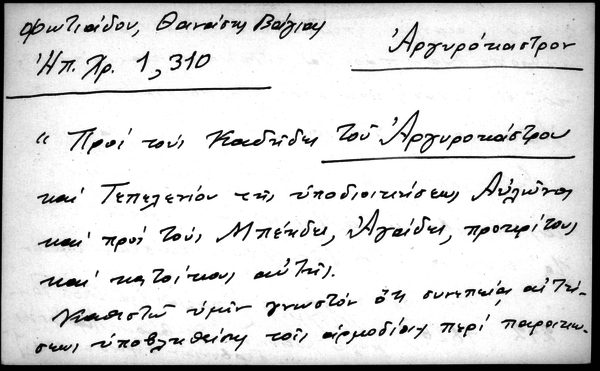 Φωτιάδου, Θανάσης Βάγιας
Ἠπ. Χρ. 1, 310
Ἀργυρόκαστρον
“ Πρὸς τοὺς Καδῆδες τοῦ Ἀργυροκάστρου
καὶ Τεπελενίου τῆς ὑποδιοικήσεως Αὐλῶνος
καὶ πρὸς τοὺς Μπέηδες, Ἀγάδες, προκρίτους
καὶ κατοίκους αὐτῆς.
Καθιστῶ ὑμῖν γνωστὸν ὅτι συνεπείᾳ αἰτή-
σεως ὑποβληθείσης τοῖς ἁρμοδίοις περὶ παροικη-